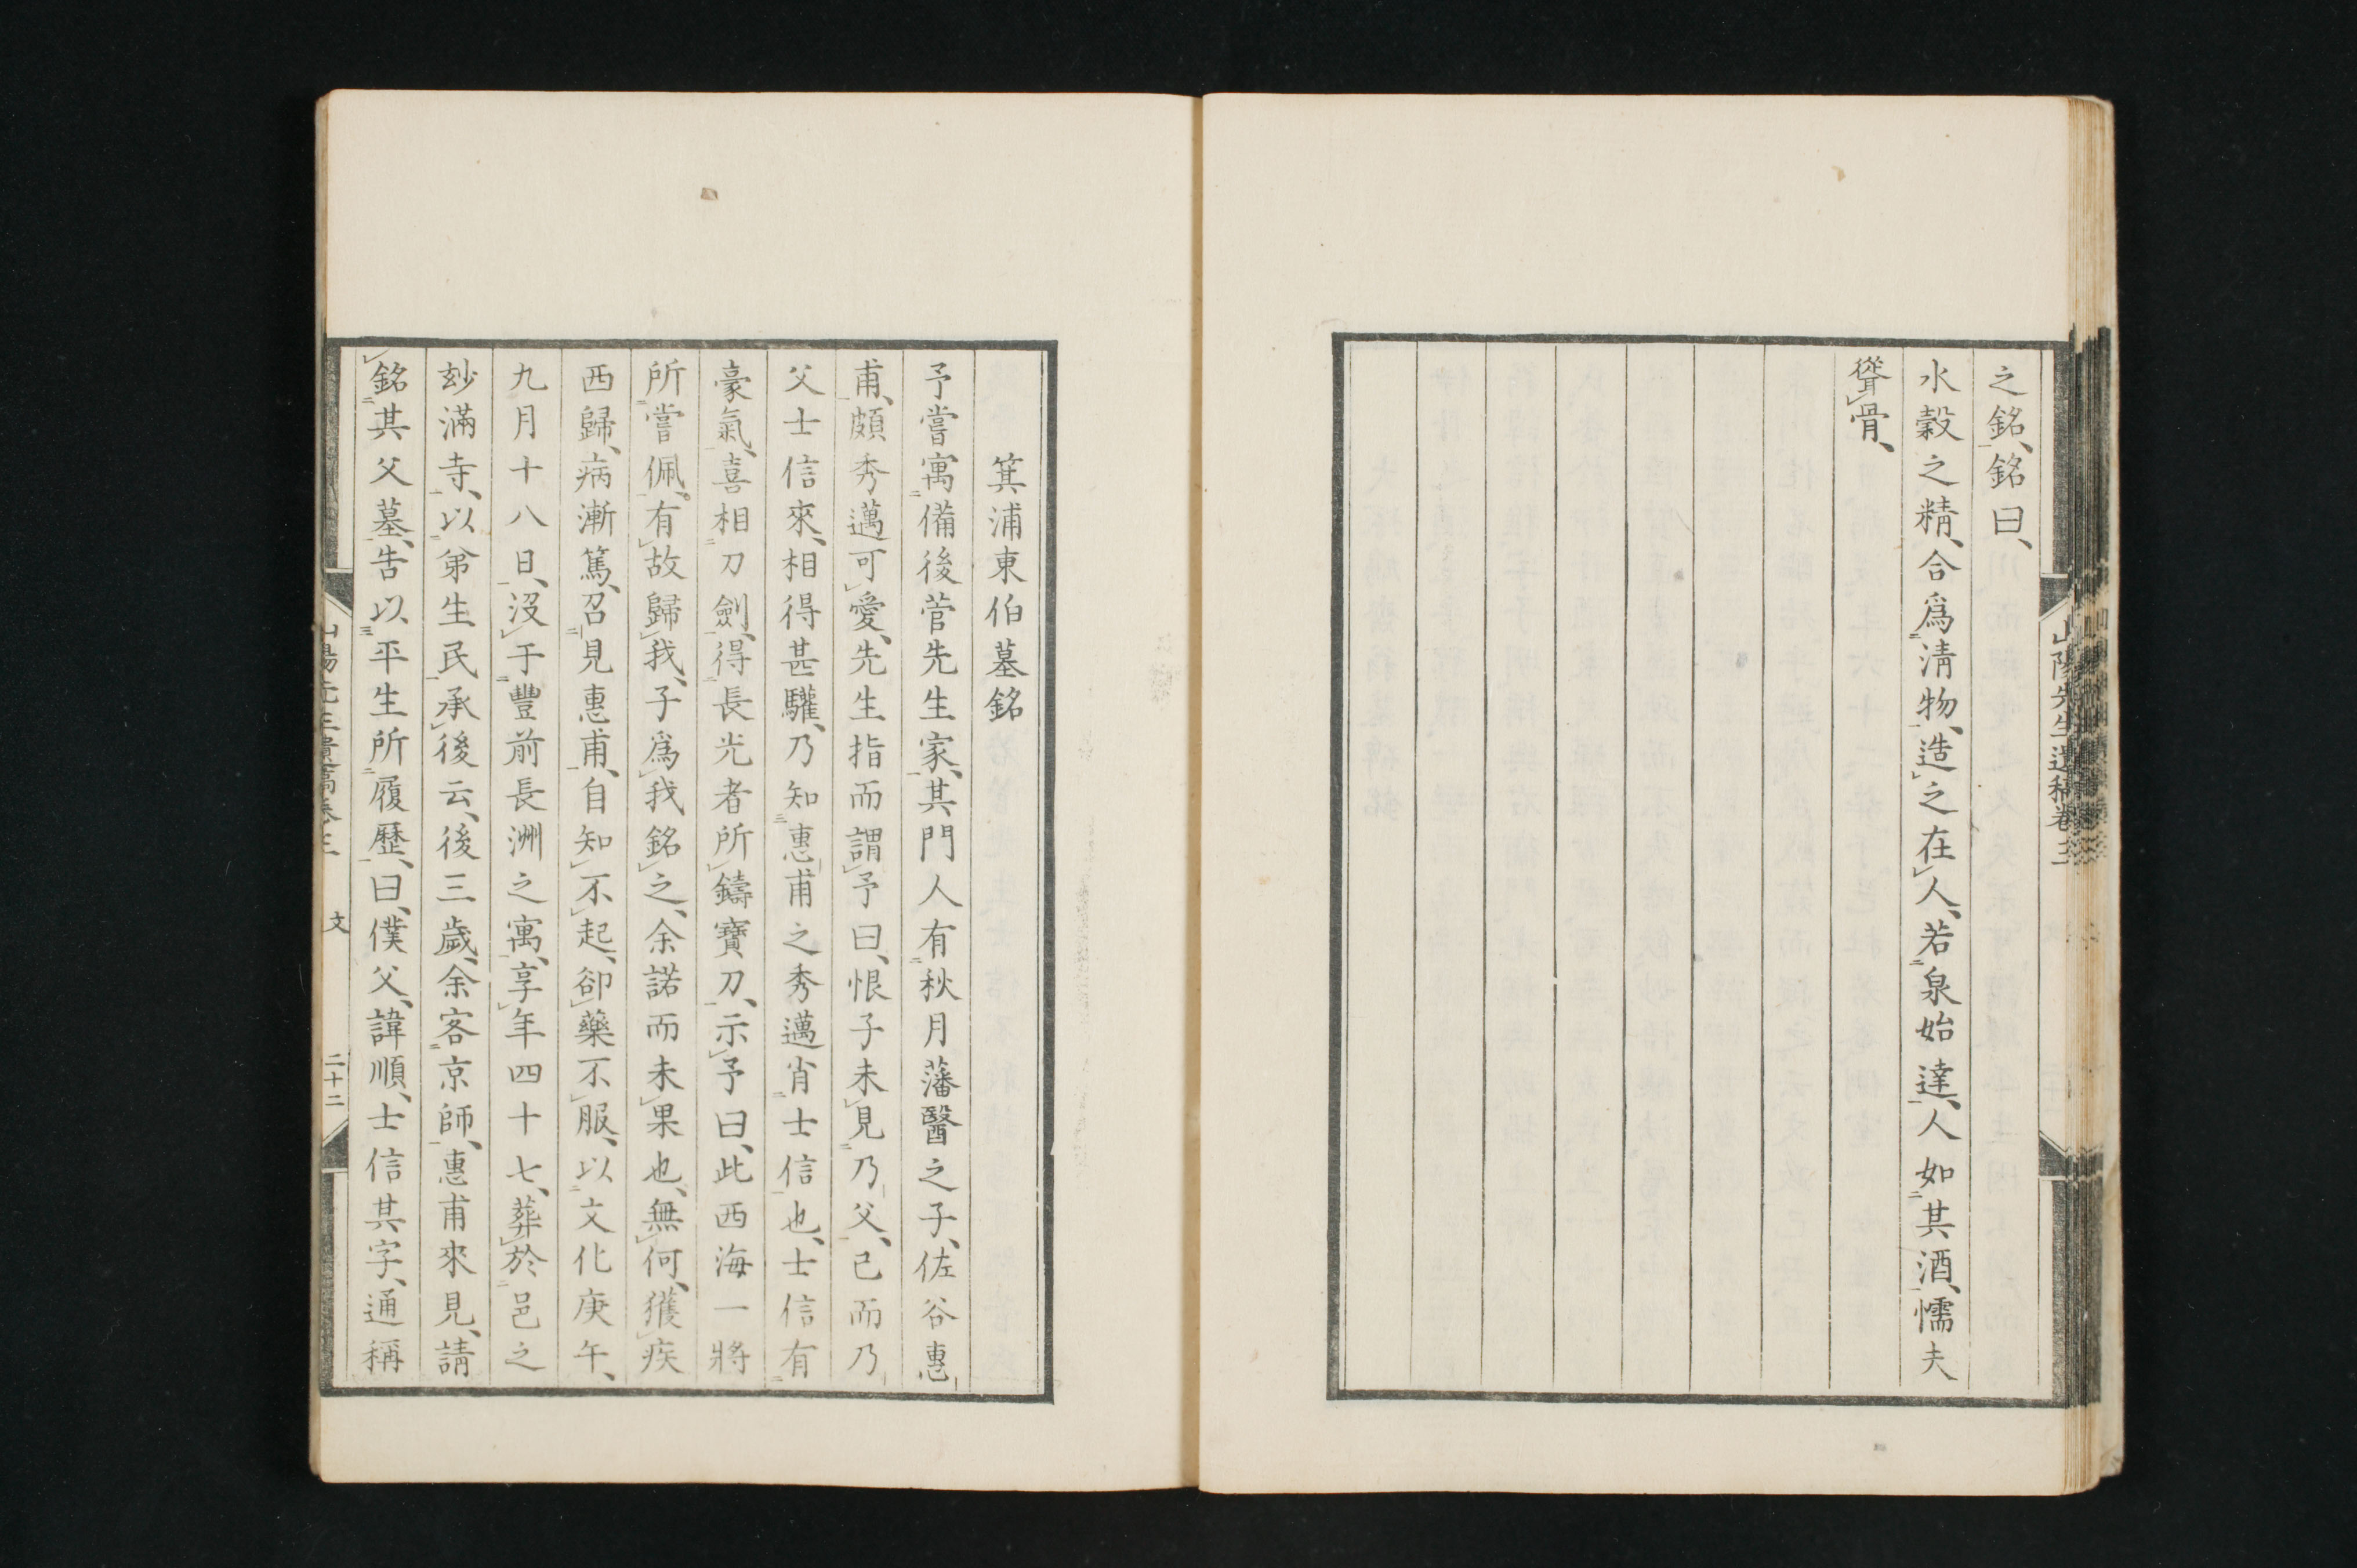 之銘、銘曰、
水穀之精、合爲淸物、造之在人、若泉始達、人如其酒、懦夫
聳骨、
山陽先生遺稿卷三
箕浦東伯墓銘
予嘗寓備後菅先生家、其門人有秋月藩醫之子、佐谷惠
甫、頗秀邁可愛、先生指而謂予曰、恨子未見乃父、已而乃
父士信來、相得甚驩、乃知惠甫之秀邁肖士信也、士信有
豪氣、喜相刀劍、得長光者所鑄寶刀、示予曰、此西海一將
所嘗佩、有故歸我、子爲我銘之、余諾而未果也、無何、獲疾
西歸、病漸篤、召見惠甫、自知不起、卻藥不服、以文化庚午、
九月十八日、沒于豐前長洲之寓、享年四十七、葬於邑之
玅滿寺、以弟生民承後云、後三歲、余客京師、惠甫來見、請
銘其父墓、告以平生所履歷、曰、僕父、諱順、士信其字、通稱
山陽先生遺稿卷三 文 二十二